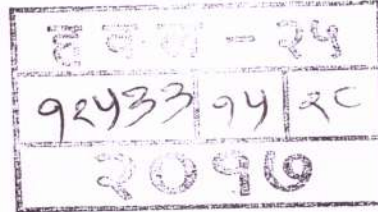 ह व ल - २५
१२५३३ १५ २८
२०१७